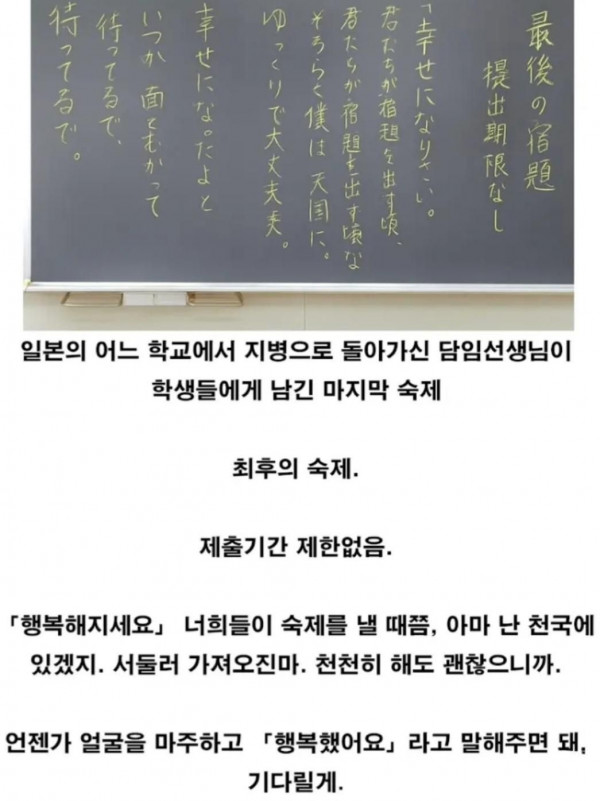 最後の宿題
提出期限なし
「幸せになりさい。
君たちが宿題を出す頃、
君たちが宿題を出す頃な
そろらく僕は天国に。
ゆっくりで大丈夫。
幸せになったよと
いつか 面とむかって
待ってるで、
待ってるで。
일본의 어느 학교에서 지병으로 돌아가신 담임선생님이
학생들에게 남긴 마지막 숙제
최후의 숙제.
제출기간 제한없음.
「행복해지세요」 너희들이 숙제를 낼 때쯤, 아마 난 천국에
있겠지. 서둘러 가져오진마. 천천히 해도 괜찮으니까.
언젠가 얼굴을 마주하고 「행복했어요」라고 말해주면 돼,
기다릴게.